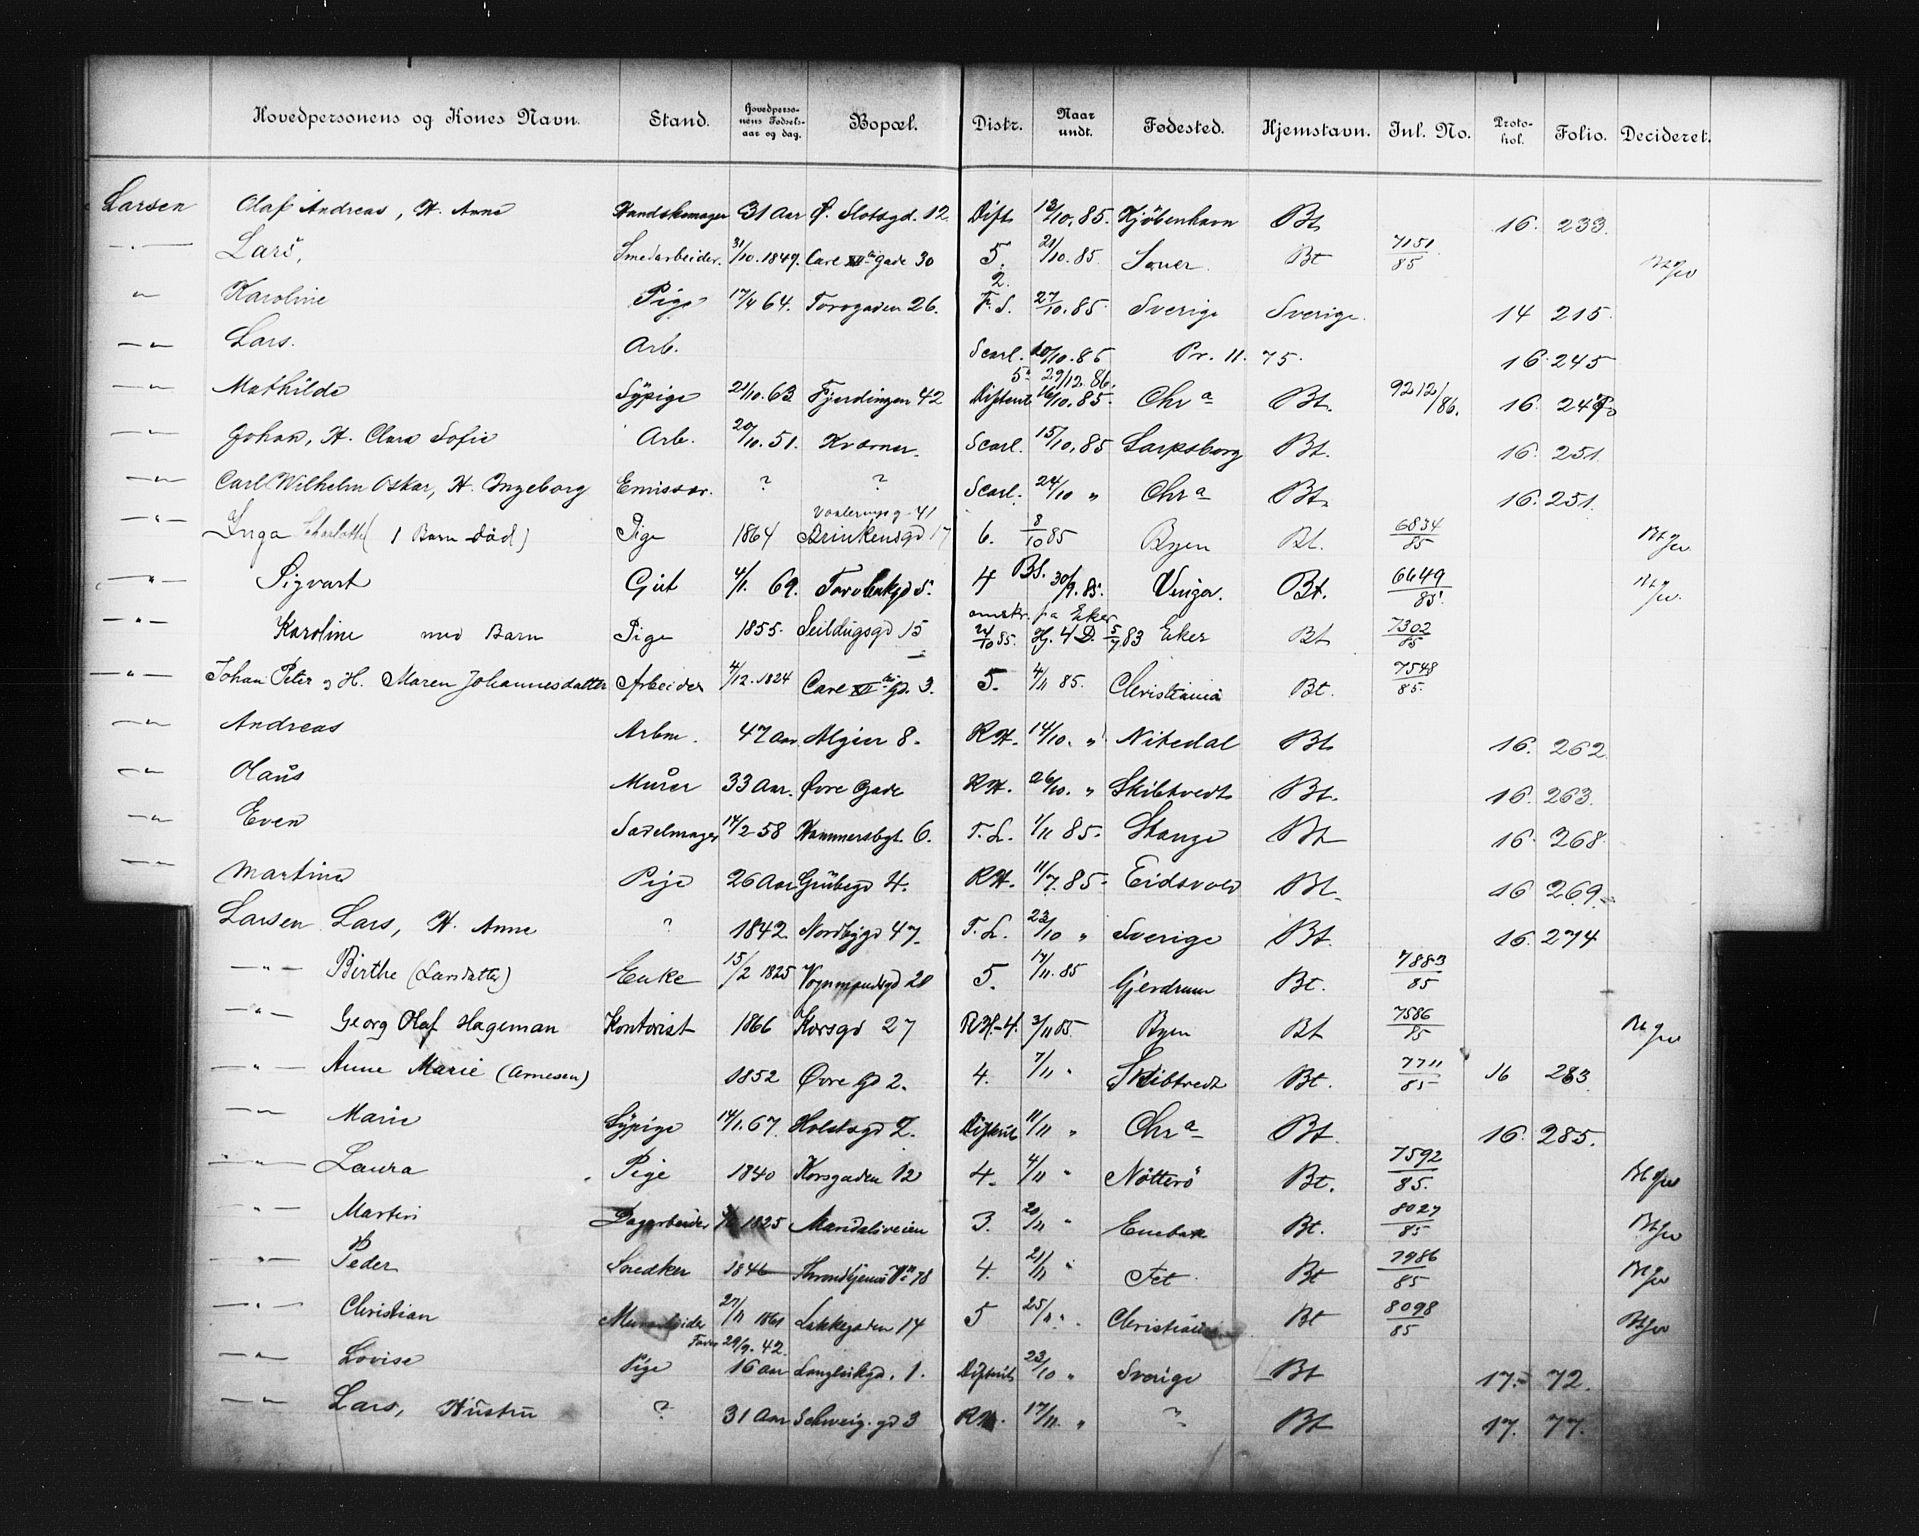 Hovedpersonens og Kones Navn. Stand. Hovedperso-nens Fødsels-aar og dag. Bopæl. Distr. Naar undt. Fødested. Hjemstavn. Inl. No. Proto-kol. Folio. Decideret.
Larsen Olaf Andreas, H. Anna Handskemager 31 Aar Ø. Slotsgd. 12 Dist 13/10. 85. Kjöbenhavn Bt 16. 233.
—"— Lars, Smedarbeider. 31/10. 1849. Carl XII te gade 30 5. 21/10. 85. Bt 7151/85
2.
" Karoline Pige 17/4 64. Torvgaden 26. F. S. 27/10. 85. Sverige Sverige. 14 215.
—"— Lars. Arb. Scarl. 20/10. 85 Pr. 11. 75. 16. 245
5. 29/12. 86.
—"— Mathilde Sÿpige 21/10. 63 Fjerdingen 42 16/10. 85. Chr a Bt. 9212/86. 16.
—"— Johan, H. Clara Sofie Arb. 20/10. 51. Kværner. Scarl. 15/10. 85 Sarpsborg Bt. 16. 251.
—"— Carl Wilhelm Oskar, H. Ingeborg Emissær. ? ? Scarl. 24/10 " Chr a Bt. 16. 251.
Vaaleringsg. 41
—"— Inga Charlotte ( 1 Barn død) Pige 1864 Brinkensgd 17 6. 8/10 85 Byen Bt. 6834/85
—"— Sigvart Gut 4/1. 69. 4 Bs. 30/9. 85. Bt. 6649/85
omskr. fra Eker
—"— Karoline med Barn Pige 1855. Seildugsgd 15 24/10 85. Hj. 4 D. 5/7 83 Eker Bt 7302/85
—"— Johan Peter og H. Maren Johannesdatter Arbeider 4/12. 1824 Carl XII te gd. 3. 5. 4/11 85. Christiania Bt. 7548/85.
—"— Andreas Arbm. 47 Aar Algier 8. RH. 14/10. " Nitedal Bt 16. 262
—"— Olaüs Mürer 33 Aar. Øvre Gade RH. 26/10. " Skibtvedt Bt. 16. 263.
—"— Even Sadelmager 14/2 - 58 Hammersbgt. 6. T. L. 1/11 85. Stange Bt 16. 268.
—"— Martine Pige 26 Aar Grübegd 4. RH. 11/7. 85. Eidsvold Bt. 16 269.
Larsen Lars, H. Anne ? 1842. Nordbygd 47. T. L. 23/10 " Sverige Bt. 16. 274
—"— Birthe (Larsdatter) Enke 15/2 1825 Vognmandsgd 20 5. 17/11. 85 Gjerdrum Bt. 7883/85
—"— Georg Olaf Hageman Kontorist 1866 Korsgd 27 RH.-4. 3/11 85 Byen Bt 7586/85
—"— Anne Marie (Arnesen) 1852 Øvre gd 2. 4. 7/11 " Skibtvedt Bt. 7711/85 16 283
—"— Marie Sÿpige 14/1. 67. Holstsgd 2. 11/11 " Chr a Bt. 16. 285.
—"— Laura Pige 1840 Korsgaden 12 4. 4/11 " Nötterö Bt. 7592/85.
—"— Martin Dagarbeider 1825 Maridalsveien 3. 20/11 " Enebak Bt. 8027/85
—"— Peder Snedker 1846 Throndhjemsvn 78 4. 21/11 " Fet Bt 7986/85
—"— Christian 27/11 1861 Lakkegaden 14 5 25/11 " Christiania Bt 8098/85
29/9. 42.
—"— Lovise Pige 16 Aar 1. 23/10 " Sverige Bt 17. 72.
—"— Lars, Hüstru ? 31 Aar Schweig. gd 3 RH. 17/11. " ? Bt 17. 77.